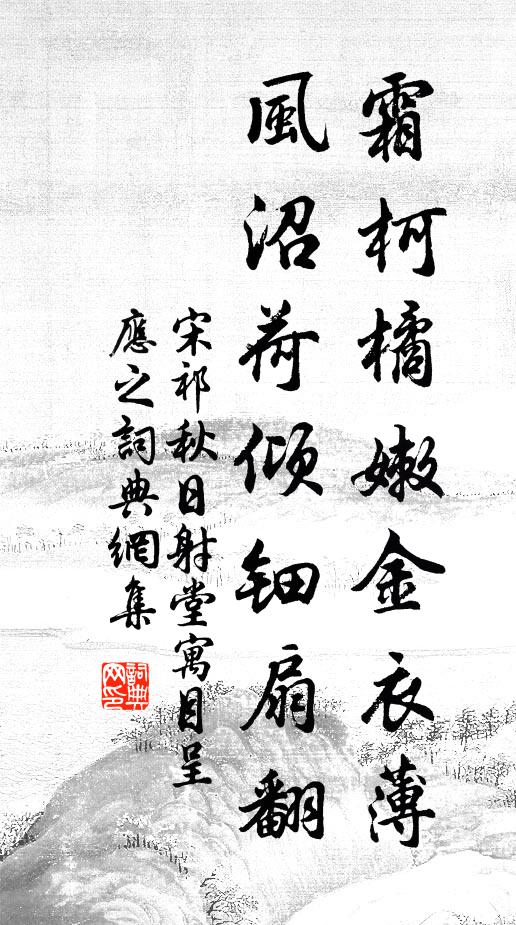 霜柯橘嫩金衣薄
風沼荷傾鈿扇翻
宋祁秋日射堂寓目呈
應之詞典網集
詞典
网印